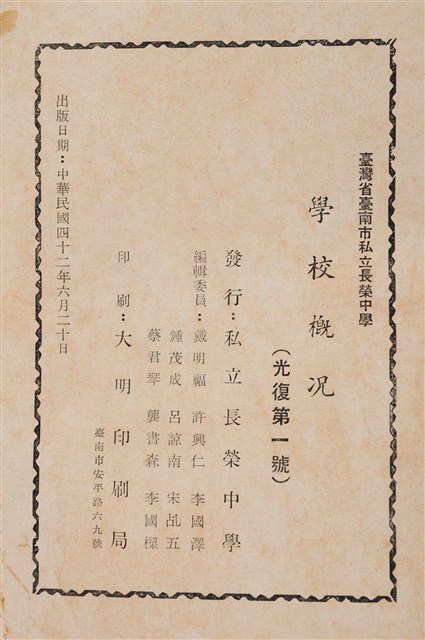 臺灣省臺南市私立長榮中學
學校概况
（光復第一號）
發行：私立長榮中學
編輯委員：戴明福 許興仁 李國澤
鍾茂成 呂諒南 宋乩五
蔡君琴 龔書森 李國樑
印刷：大明印刷局
臺南市安平路六九號
出版日期：中華民國四十二年六月二十日